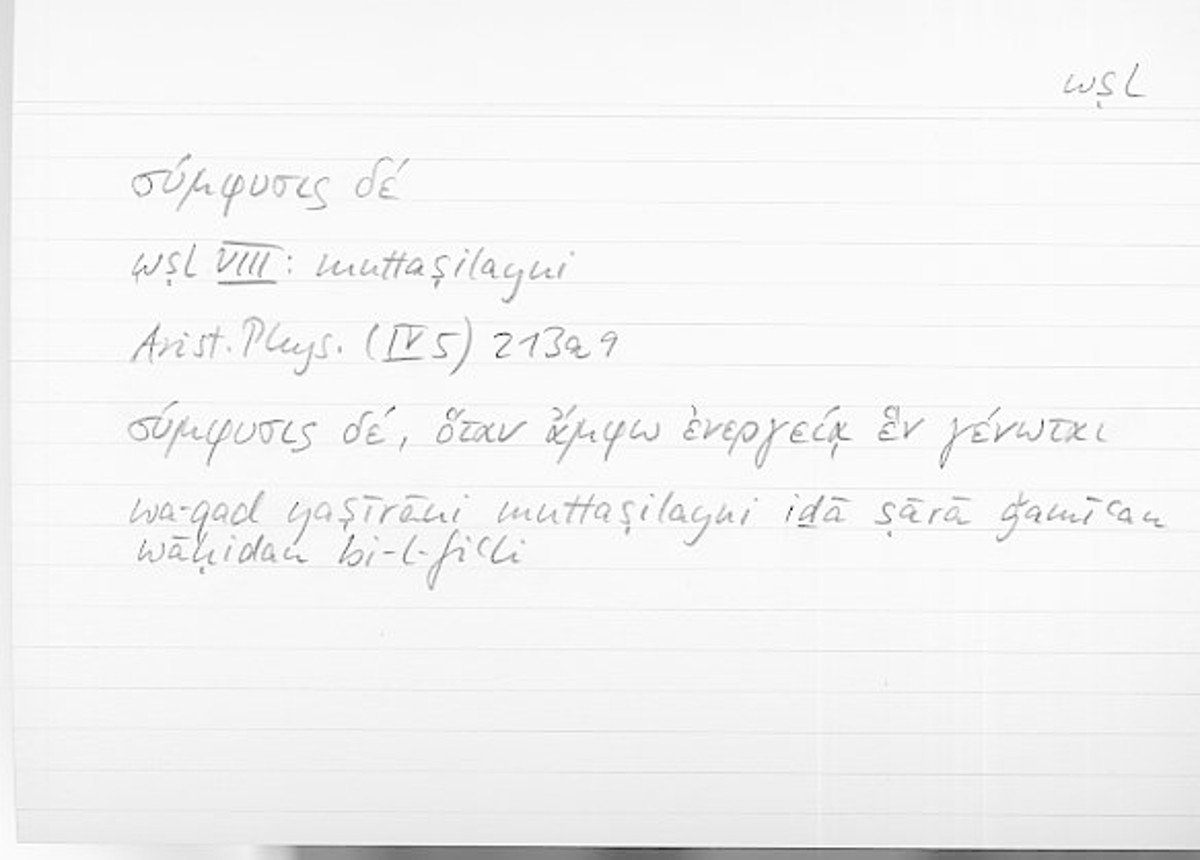 wṣl
σύμφυσις δέ
wṣl VIII: muttaṣilayni
Arist. Phys. (IV 5) 213a9
σύμφυσις δέ, ὅταν ἄμφω ἐνεργείᾳ ἓν γένωνται
wa-qad yaṣīrāni muttaṣilayni iḏā ṣārā ǧamīʿan
wāḥidan bi-l-fiʿli